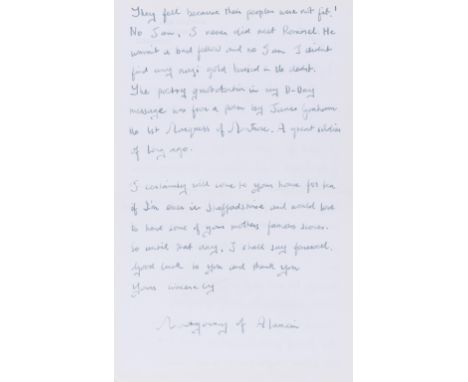 They fell because their people were not fit!
No Sam, I never did meet Rommel. He
wasn't a bad fellow and no Sam I didn't
find any nazi gold buried in the desert.
The poetry quotation in my D-Day
message was from a poem by James Graham
the 1st Marquess of Montrose. A great soldier
of long ago.
I certainly will come to your home for tea
if I'm ever in Staffordshire and would love
to have some of your mothers famous scones.
So until that day, I shall say farewell.
Good luck to you and thank you
Yours sincerely
Montgomery of Alamein